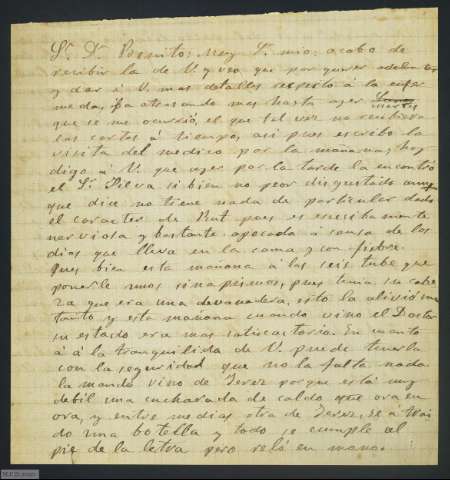 Sr. Dn. Benito: Muy Sr. mio: acabo de
recibir la de V. y veo que por querer adelantar
y dar á V. mas detalles respecto á la enfer
meda, iba atrasando mas hasta ayer
que se me ocurrió, el que tal vez no recibiera
las cartas á tiempo, asi pues escribo la
visita del medico por la mañana, hoy
digo á V. que ayer por la tarde la encontró
el Sr. Silva si bien no peor disgustado aunq
que dice no tiene nada de particular dado
el caracter de Rut pues es
nerviosa y bastante apocada á causa de los
dias que lleva en la cama y con fiebre.
Pues bien esta mañana á las seis tube que
ponerle unos sinapismos, pues tenia su cabe
za que era una devanadera, esto la alivió un
tanto y esta mañana cuando vino el Doctor
su estado era mas satisfactorio. En cuanto
á á la tranquilida de V. puede tenerla
con la seguridad que no la falta nada
la mandó vino de Jerez porque está muy
debil una cucharada de caldo que ora en
ora, y entre medias otra de Jerez, se á trai
do una botella y todo se cumple al
pie de la letra pero reló en mano.